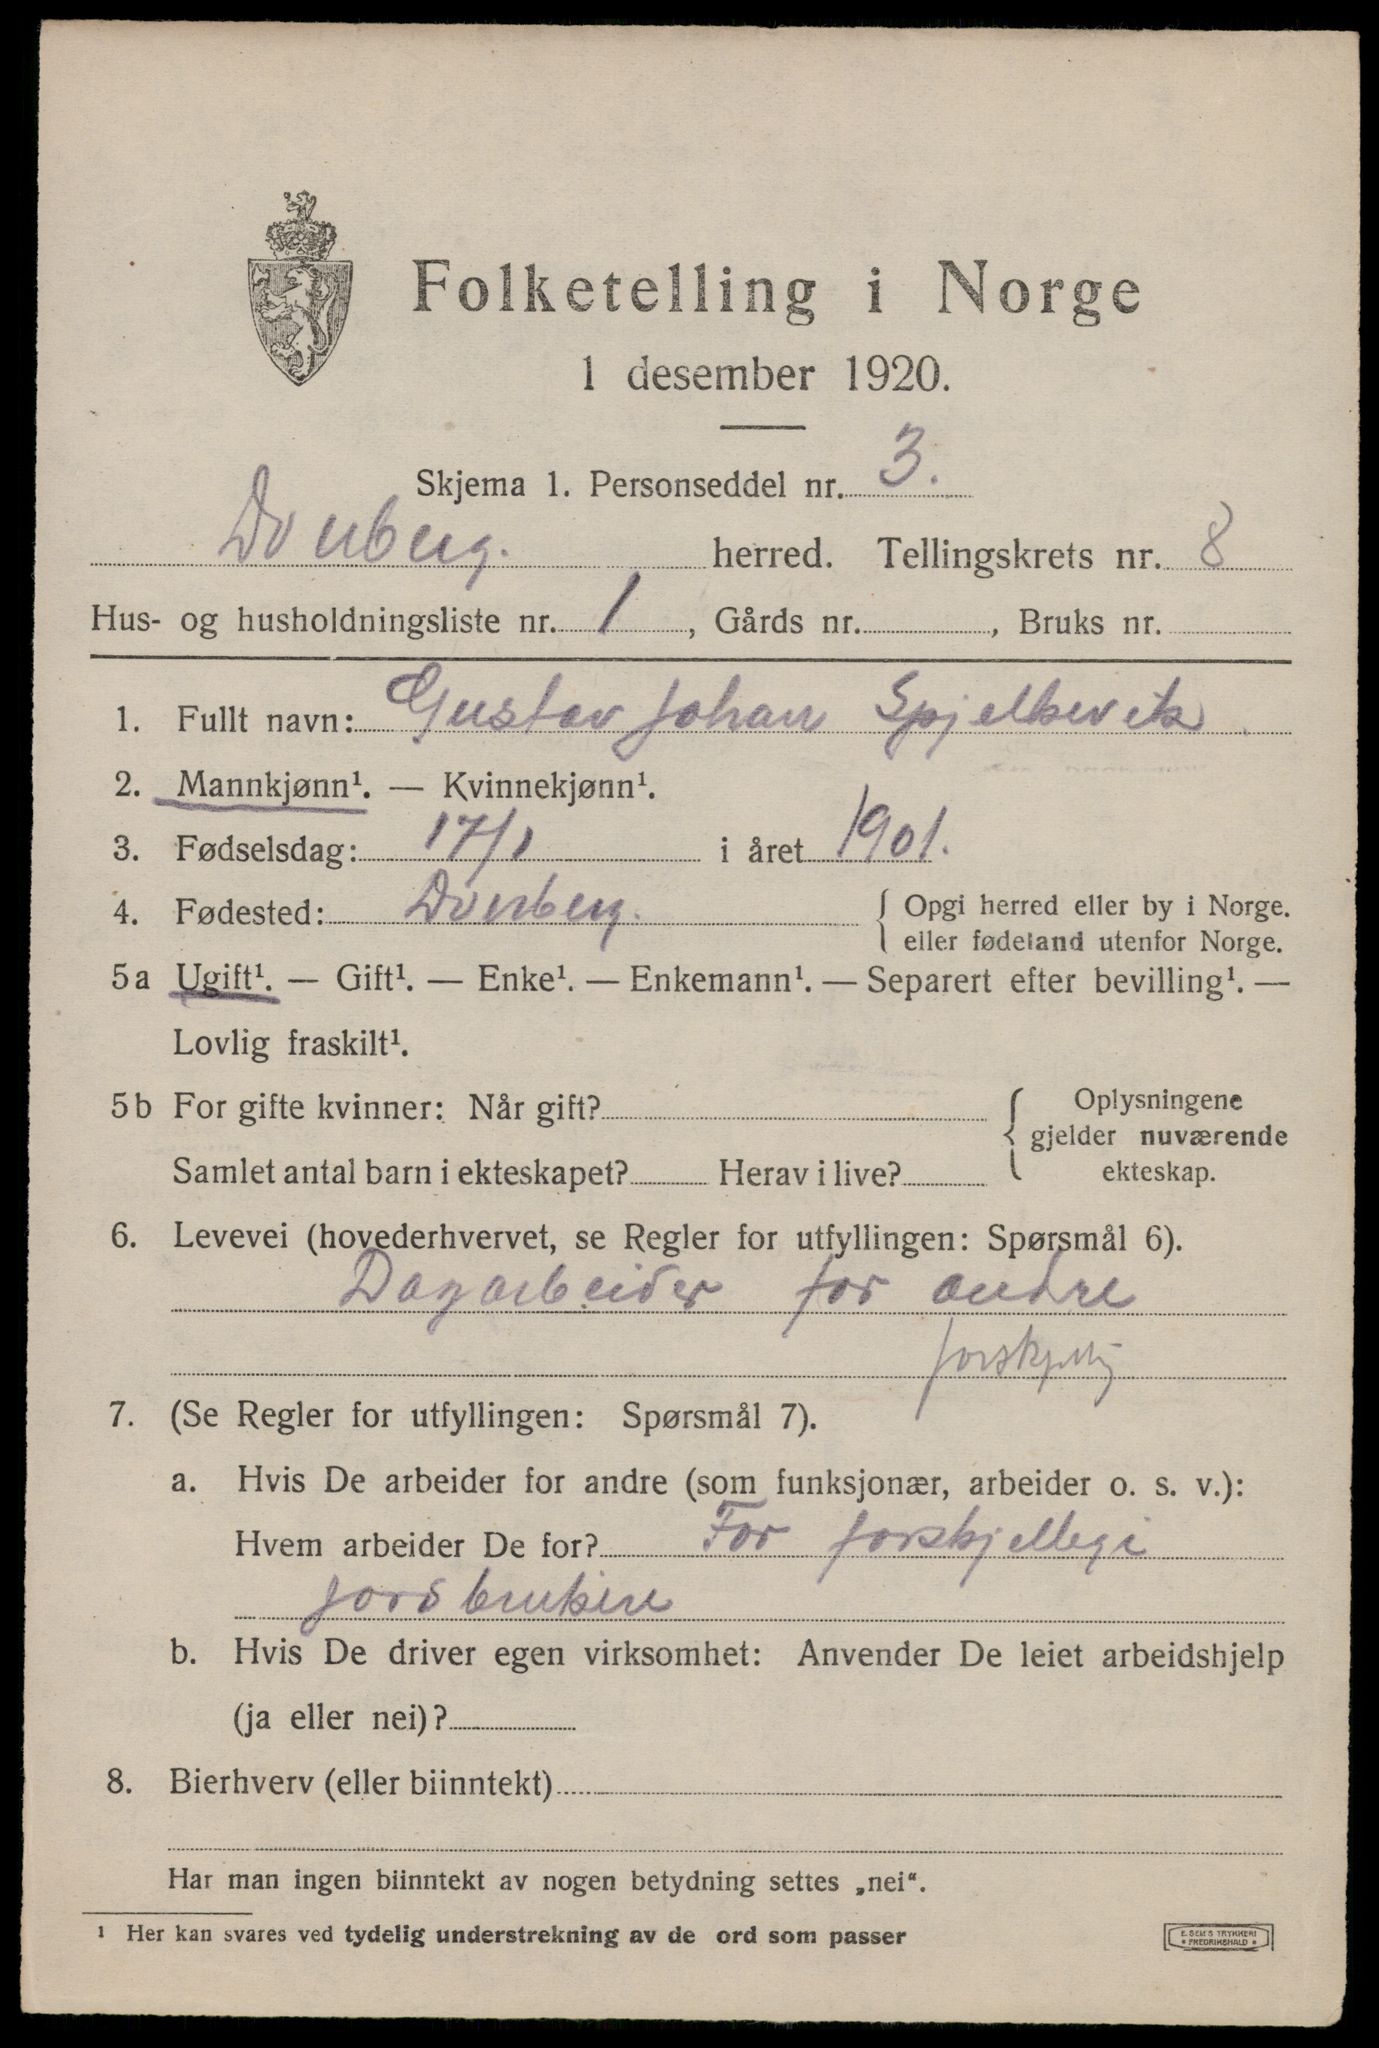 Folketelling i Norge
1 desember 1920.
Skjema 1. Personseddel nr. 3.
Dverberg. herred. Tellingskrets nr. 8
Hus- og husholdningsliste nr. 1, Gårds nr. , Bruks nr.
1. Fullt navn: Gustav Johan Spjelkevik
2. Mannkjønn¹. — Kvinnekjønn¹.
3. Fødselsdag: 17/1 i året 1901.
4. Fødested: Dverberg. { Opgi herred eller by i Norge.
eller fødeland utenfor Norge.
5a Ugift¹. — Gift¹. — Enke¹. — Enkemann¹. — Separert efter bevilling¹. —
Lovlig fraskilt¹.
5b For gifte kvinner: Når gift? { Oplysningene
gjelder nuværende
Samlet antal barn i ekteskapet? Herav i live? ekteskap.
6. Levevei (hovederhvervet, se Regler for utfyllingen: Spørsmål 6).
Dagarbeider for andre
forskjellig
7. (Se Regler for utfyllingen: Spørsmål 7).
a. Hvis De arbeider for andre (som funksjonær, arbeider o. s. v.):
Hvem arbeider De for? For forskjellegi
jordbrukere
b. Hvis De driver egen virksomhet: Anvender De leiet arbeidshjelp
(ja eller nei)?
8. Bierhverv (eller biinntekt)
Har man ingen biinntekt av nogen betydning settes „nei“.
¹ Her kan svares ved tydelig understrekning av de ord som passer
E. SEM'S TRYKKERI
* FREDRIKSHALD *